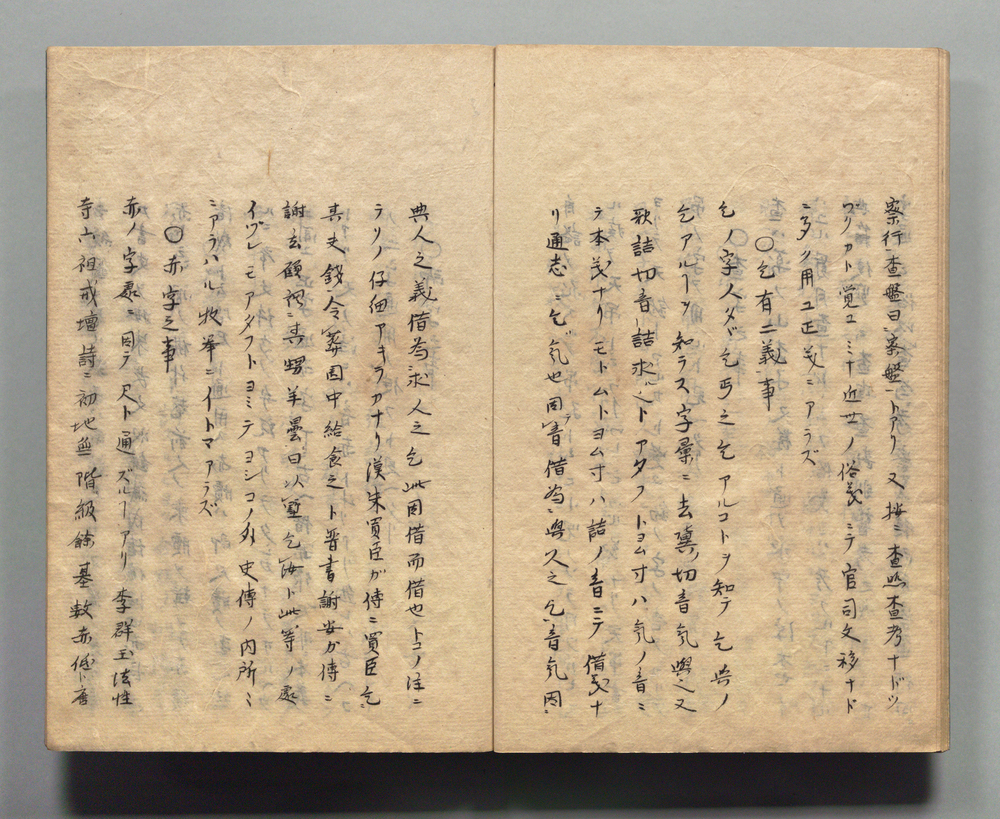 察行査盤曰察盤トアリ又按ニ査照査考ナドツ
ヅリカト覚ユミナ近世ノ俗義ニテ官司文移ナド
ニ多ク用ユ正義ニアラズ
〇乞有二義事
乞ノ字人タヾ乞丐之乞アルコトヲ知テ乞与ノ
乞アルヿヲ知ラス字彙ニ去冀切音気與之又
欺詰切音詰求トアタフトヨム寸ハ気ノ音ニ
テ本義ナリモトムトヨム寸ハ詰ノ音ニテ借義ナ
リ通志ニ乞气也因音借為與人之乞音気因
與人之義借為求人之乞此因借而借也トコノ注ニ
テソノ仔細アキラカナリ漢朱買臣ガ傳ニ買臣乞
其丈錢令葬因中給食之ト晋書謝安ガ傳ニ
謝玄顧視其甥羊曇曰以墅乞汝ト此等ノ處
イヅレモアタフトヨミテヨシコノ外史傳ノ内所ミ
ニアラハル枚挙ニイトマアラズ
〇赤字之事
赤ノ字處ニ因テ尺ト通ズルヿアリ李群玉法性
寺六祖戒壇詩ニ初地無階級餘基数赤低ト